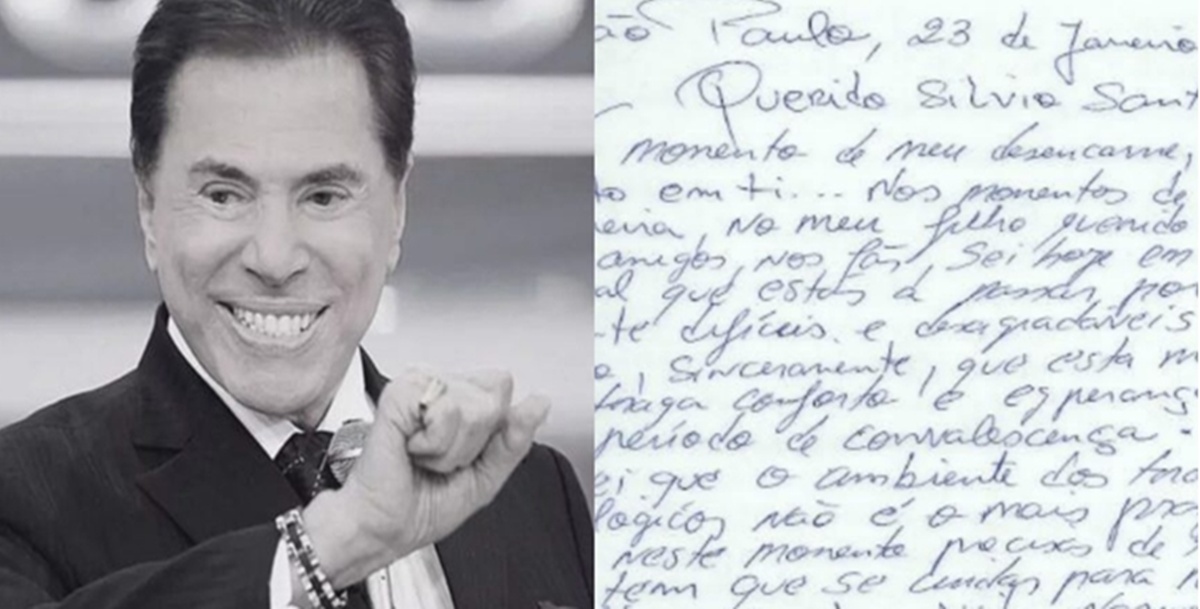 ão Paulo, 23 de Janeiro
Querido Silvio Sant
momento de meu desencarne,
em ti... Nos momentos de
eira, no meu filho querido
amigos, nos fãs, Sei hoje em
al que estás a passar por
te difíceis e desagradáveis
o, sinceramente, que esta m
traga conforto e esperanç
período de convalescença.
ei que o ambiente dos
lógicos não é o mais
neste momento precisas de
tem que se cuidar para